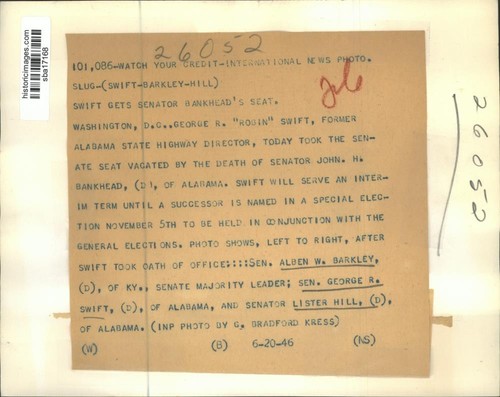 historicimages.com
sba17168
26052
101,086-WATCH YOUR CREDIT-INTERNATIONAL NEWS PHOTO.
SLUG-(SWIFT-BARKLEY-HILL)
SWIFT GETS SENATOR BANKHEAD'S SEAT.
WASHINGTON, D.C..GEORGE R. "ROBIN" SWIFT, FORMER
ALABAMA STATE HIGHWAY DIRECTOR, TODAY TOOK THE SEN-
ATE SEAT VACATED BY THE DEATH OF SENATOR JOHN. H.
BANKHEAD, (D), OF ALABAMA. SWIFT WILL SERVE AN INTER-
IM TERM UNTIL A SUCCESSOR IS NAMED IN A SPECIAL ELEC-
TION NOVEMBER 5TH TO BE HELD IN CONJUNCTION WITH THE
GENERAL ELECTIONS. PHOTO SHOWS, LEFT TO RIGHT, AFTER
SWIFT TOOK OATH OF OFFICE::::SEN. ALBEN W. BARKLEY,
(D), OF KY., SENATE MAJORITY LEADER; SEN. GEORGE R.
SWIFT, (D), OF ALABAMA, AND SENATOR LISTER HILL, (D),
OF ALABAMA. (INP PHOTO BY G. BRADFORD KRESS)
(W) (B) 6-20-46 (NS)
26052